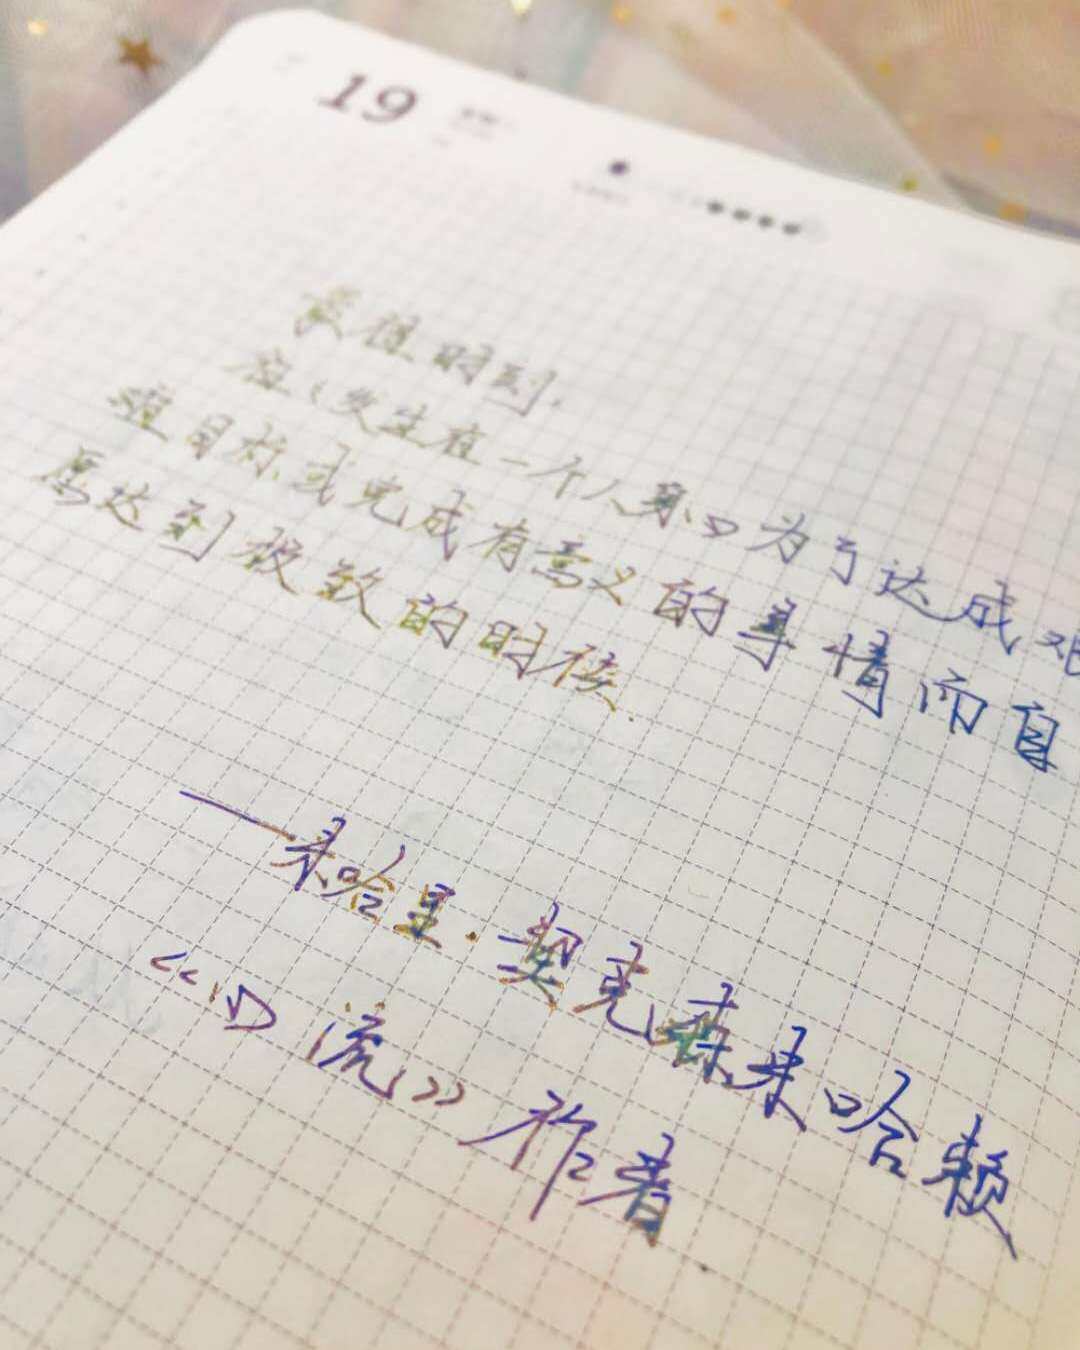 19
最佳时刻,
应(发生在一个人身心为了达成艰
难目标或完成有意义的事情而自
愿达到极致的时候.
——米哈里·契克森米哈赖
《心流》作者